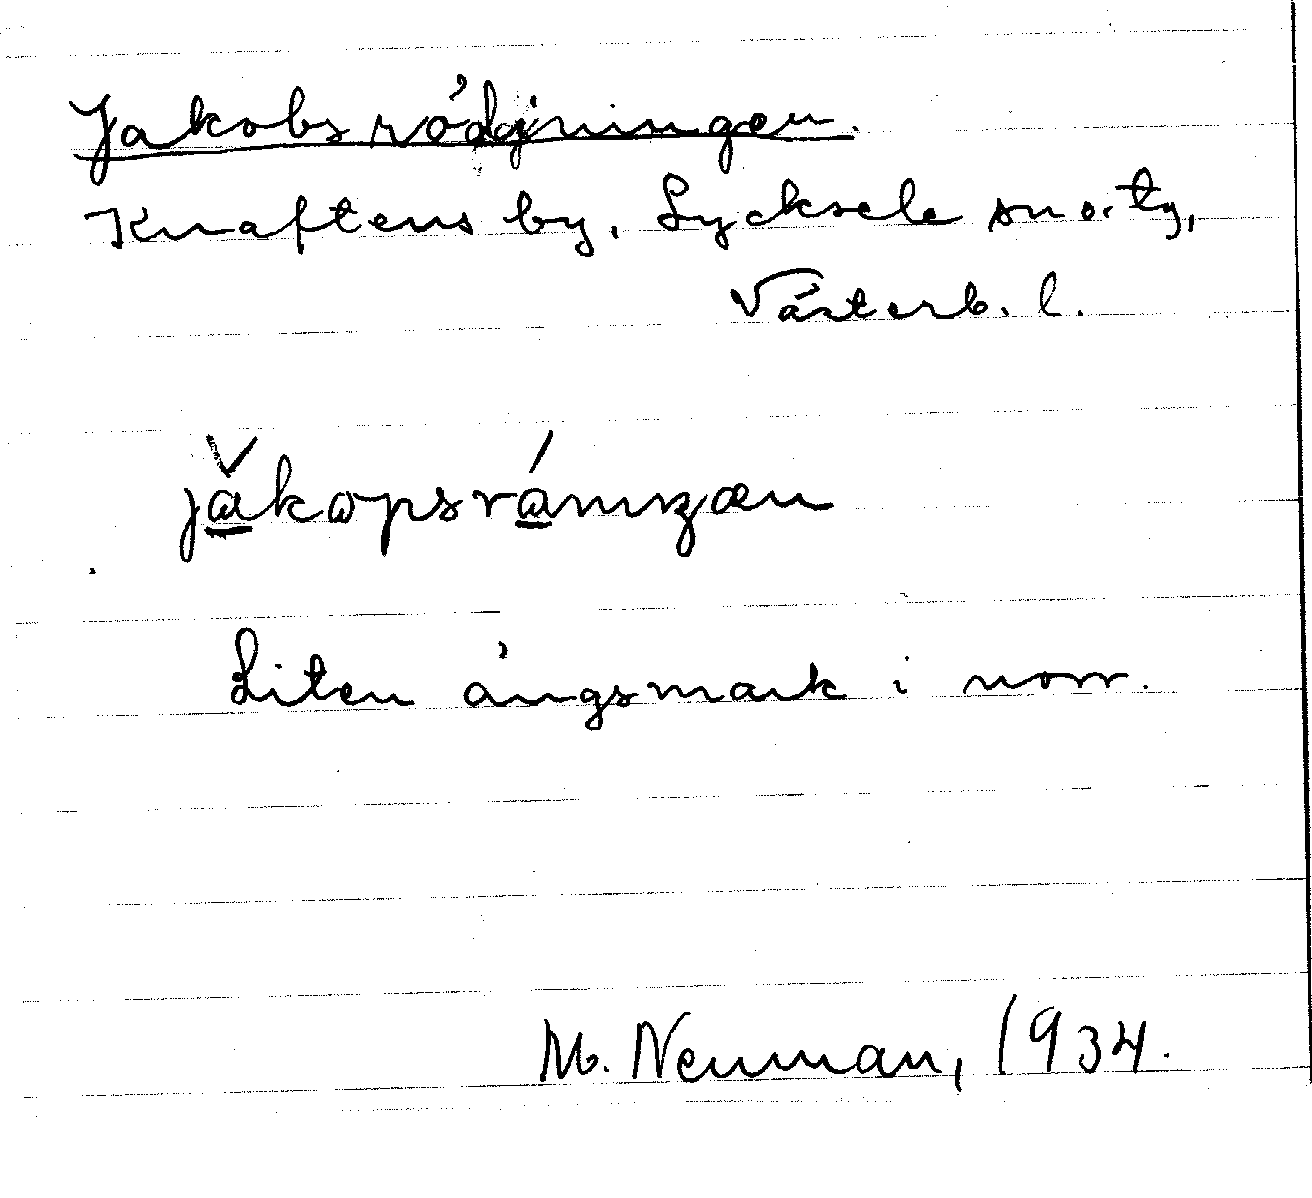 Jakobsrödjningen.
Knaftens by, Lycksele sn o. tg,
Västerb. l.
jǎkopsránnɪŋæn
Liten ängsmark i norr.
M. Neuman, 1934.